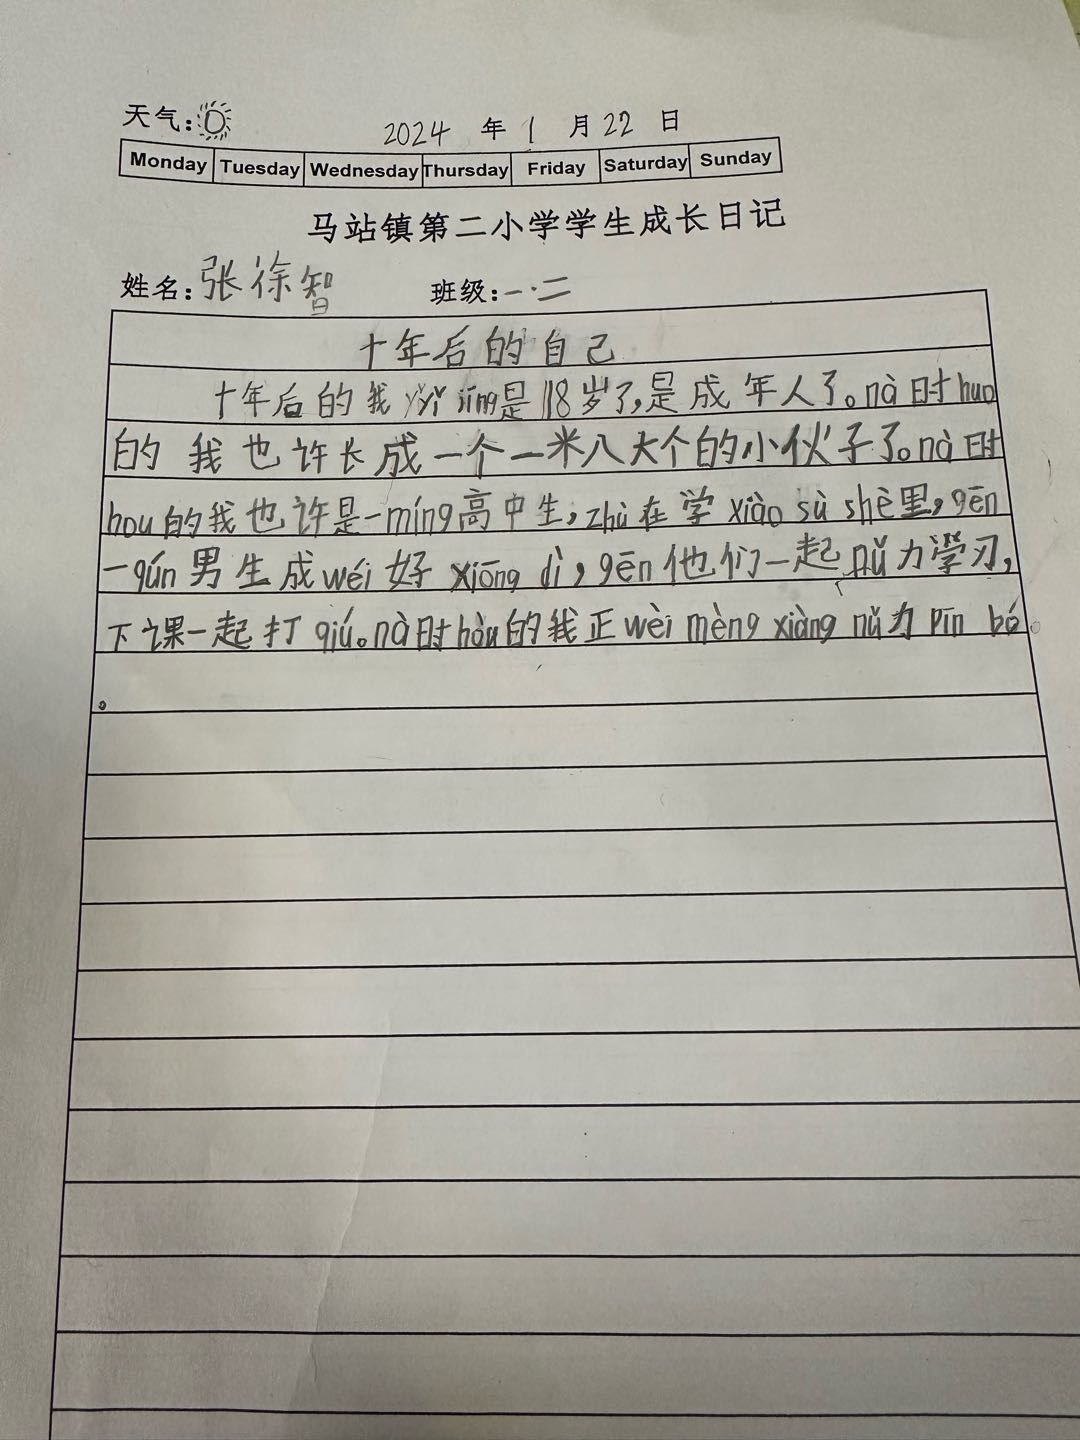 天气:
2024 年 1 月 22 日
Monday Tuesday Wednesday Thursday Friday Saturday Sunday
马站镇第二小学学生成长日记
姓名:张徐智 班级:一·二
十年后的自己
十年后的我 yǐ jīng是18岁了,是成年人了。nà时huo
的我也许长成一个一米八大个的小伙子了。nà时
hou的我也许是一míng高中生,zhù在学xiào sù shè里,gēn
一qún男生成wéi好xiōng dì,gēn他们一起nǔ力学习,
下课一起打qiú。nà时hòu的我正wèi mèng xiàng nǔ力pīn bó
。